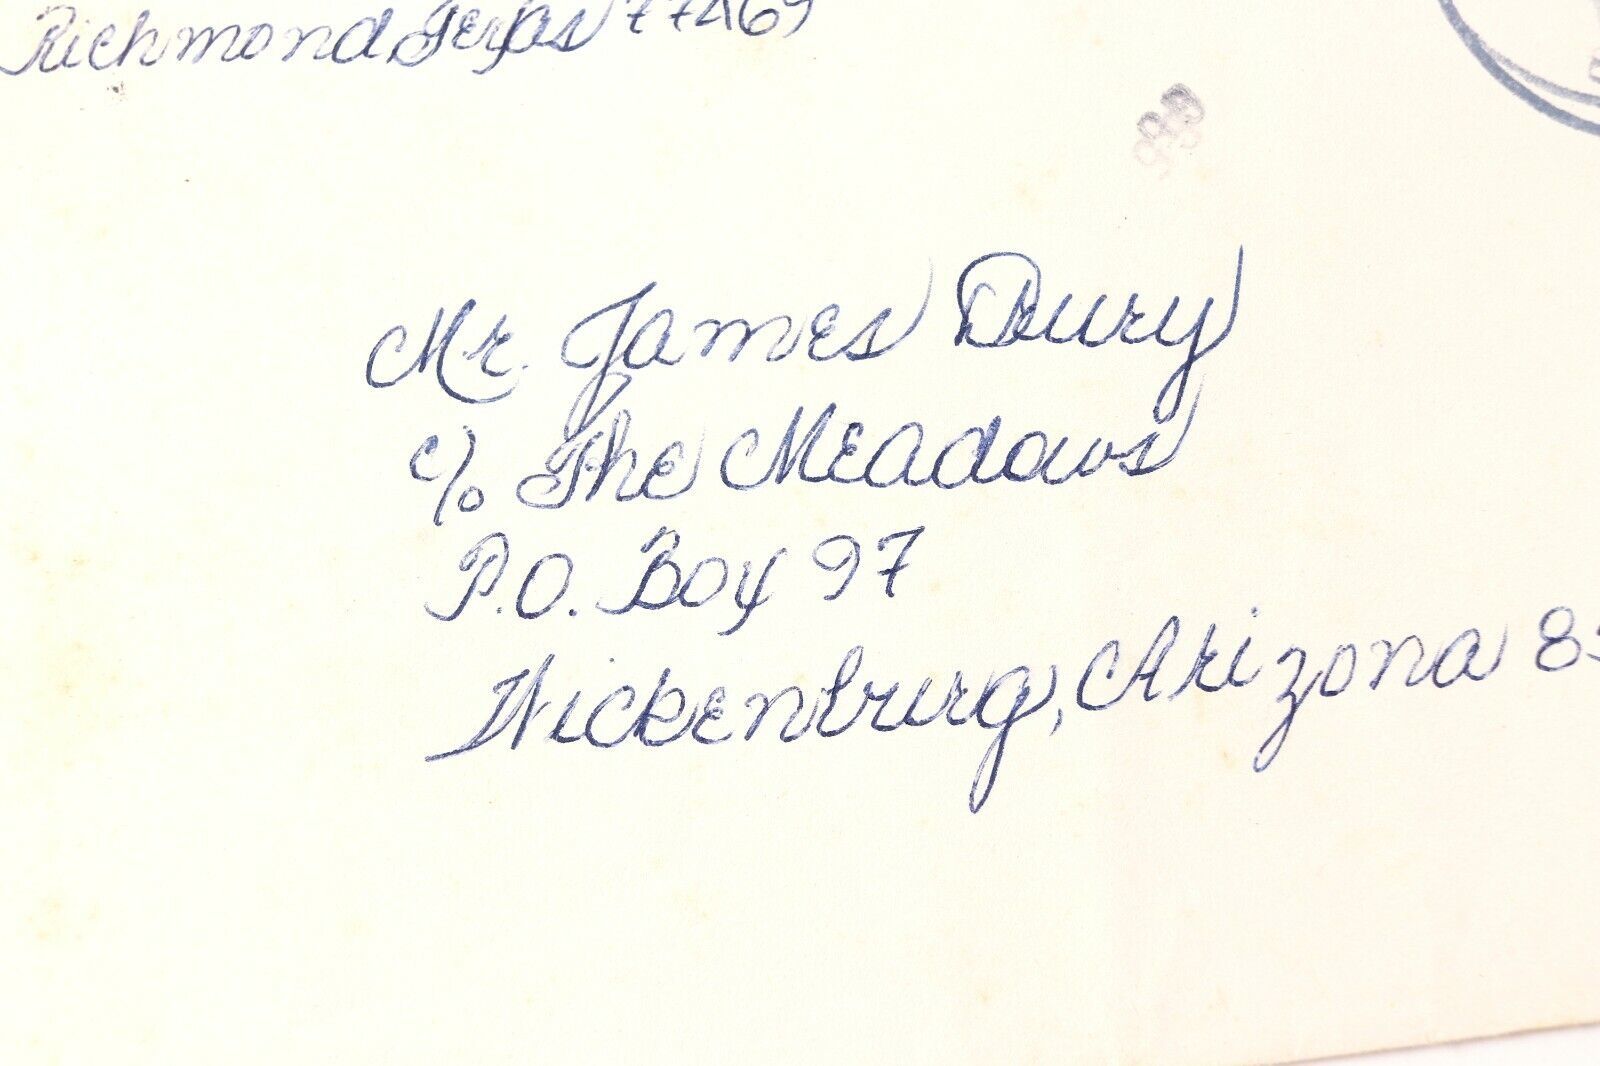 Richmond Texas 77469
Mr. James Drury
c/o The Meadows
P.O. Box 97
Wickenburg, Arizona 85